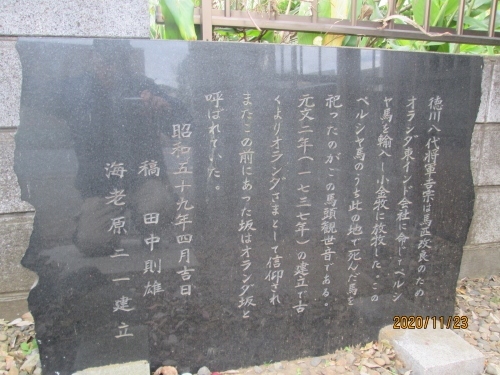 徳川八代将軍吉宗は馬匹改良のため
オランダ東インド会社に命じてペルシ
ャ馬を輸入し小金牧に放牧した、この
ペルシャ馬のうち此の地で死んだ馬を
祀ったのがこの馬頭観世音である。
元文二年(一七三七年)の建立で古
くよりオランダさまとして信仰され
またこの前にあった坂はオランダ坂と
呼ばれていた。
昭和五十九年四月吉日
稿 田中則雄
海老原二一建立
2020/11/23